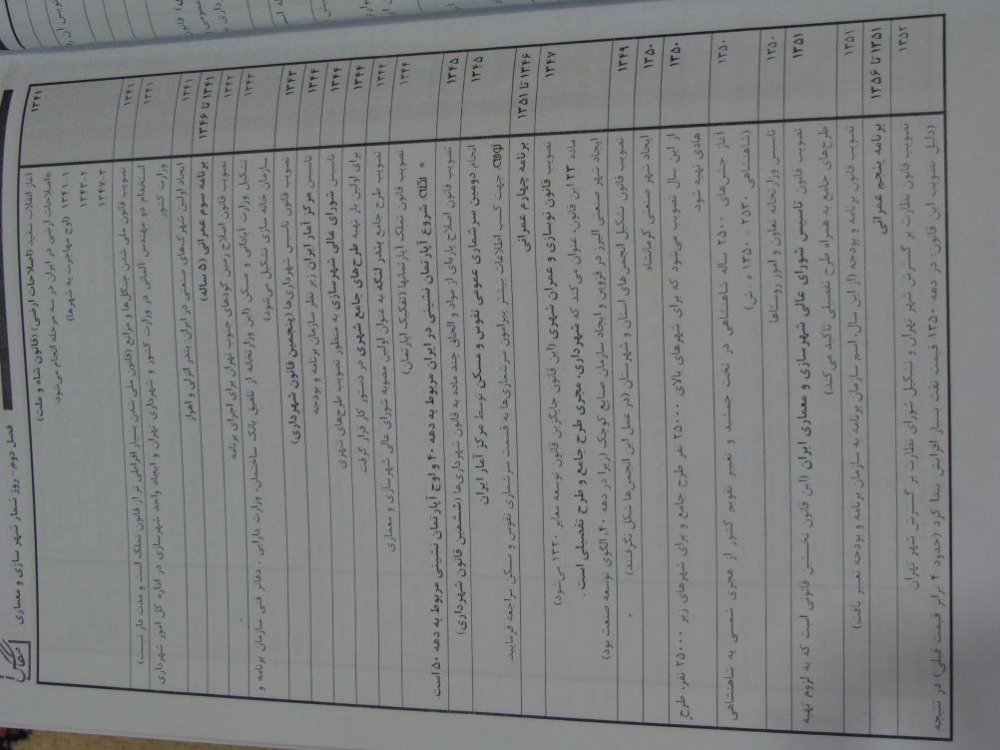 فصل دوم - روز شمار شهر سازی و معماری
۱۳۴۱
آغاز انقلاب سفید (اصلاحات ارضی) (قانون شاه و ملت)
«اصلاحات ارضی در ایران در سه مرحله انجام می‌شود:
۱-۱۳۴۱ (اوج مهاجرت به شهرها)
۲-۱۳۴۳
۳-۱۳۴۷
۱۳۴۱
تصویب قانون ملی شدن جنگل‌ها و مراتع (قانون ملی شدن بسیار افراطی تر از قانون تملک است و مفت دار نیست)
۱۳۴۱
استخدام دو مهندس آلمانی در وزارت کشور و شهرداری تهران و ایجاد واحد شهرسازی در اداره کل امور شهرداری
وزارت کشور
۱۳۴۱
ایجاد اولین شهرک‌های صنعتی در ایران: بندر انزلی و اهواز
۱۳۴۱ تا ۱۳۴۶
برنامه سوم عمرانی (۵ ساله)
۱۳۴۲
تصویب قانون اصلاح زمین گودهای جنوب تهران برای اجرای برنامه
۱۳۴۳
تشکیل وزارت آبادانی و مسکن (این وزارتخانه از تلفیق بانک ساختمانی، وزارت دارایی، دفاتر فنی سازمان برنامه و
سازمان خانه سازی تشکیل می‌شود)
۱۳۴۳
تصویب قانون تاسیس شهرداری‌ها (پنجمین قانون شهرداری)
۱۳۴۴
تاسیس مرکز آمار ایران زیر نظر سازمان برنامه و بودجه
۱۳۴۴
تاسیس شورای عالی شهرسازی به منظور تصویب طرح‌های شهری
۱۳۴۴
برای اولین بار تهیه طرح‌های جامع شهری در دستور کار قرار گرفت
۱۳۴۴
تصویب طرح جامع بندر لنگه به عنوان اولین مصوبه شورای عالی شهرسازی و معماری
۱۳۴۴
تصویب قانون تملک آپارتمانها (تفکیک آپارتمان)
* نکته: شروع آپارتمان نشینی در ایران مربوط به دهه ۴۰ و اوج آپارتمان نشینی مربوط به دهه ۵۰ است.
۱۳۴۵
تصویب قانون اصلاح پاره‌ای از مواد و الحاق چند ماده به قانون شهرداری‌ها (ششمین قانون شهرداری)
۱۳۴۵
انجام دومین سرشماری عمومی نفوس و مسکن توسط مرکز آمار ایران
توجه: جهت کسب اطلاعات بیشتر پیرامون سرشماری‌ها به قسمت سرشماری نفوس و مسکن مراجعه فرمایید.
۱۳۴۶ تا ۱۳۵۱
برنامه چهارم عمرانی
۱۳۴۷
تصویب قانون نوسازی و عمران شهری (این قانون جایگزین قانون توسعه معابر ۱۳۲۰ می‌شود)
ماده ۲۳ این قانون، عنوان می‌کند که شهرداری، مجری طرح جامع و طرح تفصیلی است.
ایجاد شهر صنعتی البرز در قزوین و ایجاد سازمان صنایع کوچک (زیرا در دهه ۴۰، الگوی توسعه صنعت بود)
۱۳۴۹
تصویب قانون تشکیل انجمن‌های استان و شهرستان (در عمل این انجمن‌ها شکل نگرفتند)
۱۳۵۰
ایجاد شهر صنعتی کرمانشاه
۱۳۵۰
از این سال تصویب می‌شود که برای شهرهای بالای ۲۵۰۰۰ نفر طرح جامع و برای شهرهای زیر ۲۵۰۰۰ نفر، طرح
هادی تهیه شود.
۱۳۵۰
آغاز جشن‌های ۲۵۰۰ ساله شاهنشاهی در تخت جمشید و تغییر تقویم کشور از هجری شمسی به شاهنشاهی
(شاهنشاهی ۲۵۳۰ = ۱۳۵۰ ه . ش)
۱۳۵۰
تاسیس وزارتخانه تعاون و امور روستاها
۱۳۵۱
تصویب قانون تاسیس شورای عالی شهرسازی و معماری ایران (این قانون نخستین قانونی است که به لزوم تهیه
طرح‌های جامع به همراه طرح تفصیلی تاکید می‌کند)
۱۳۵۱
تصویب قانون برنامه و بودجه (از این سال اسم سازمان برنامه به سازمان برنامه و بودجه تغییر یافت)
۱۳۵۱ تا ۱۳۵۶
برنامه پنجم عمرانی
۱۳۵۲
تصویب قانون نظارت بر گسترش شهر تهران و تشکیل شورای نظارت بر گسترش شهر تهران
(دلیل تصویب این قانون: در دهه ۱۳۵۰ قیمت نفت بسیار افزایش پیدا کرد (حدود ۴ برابر قیمت قبلی) در نتیجه